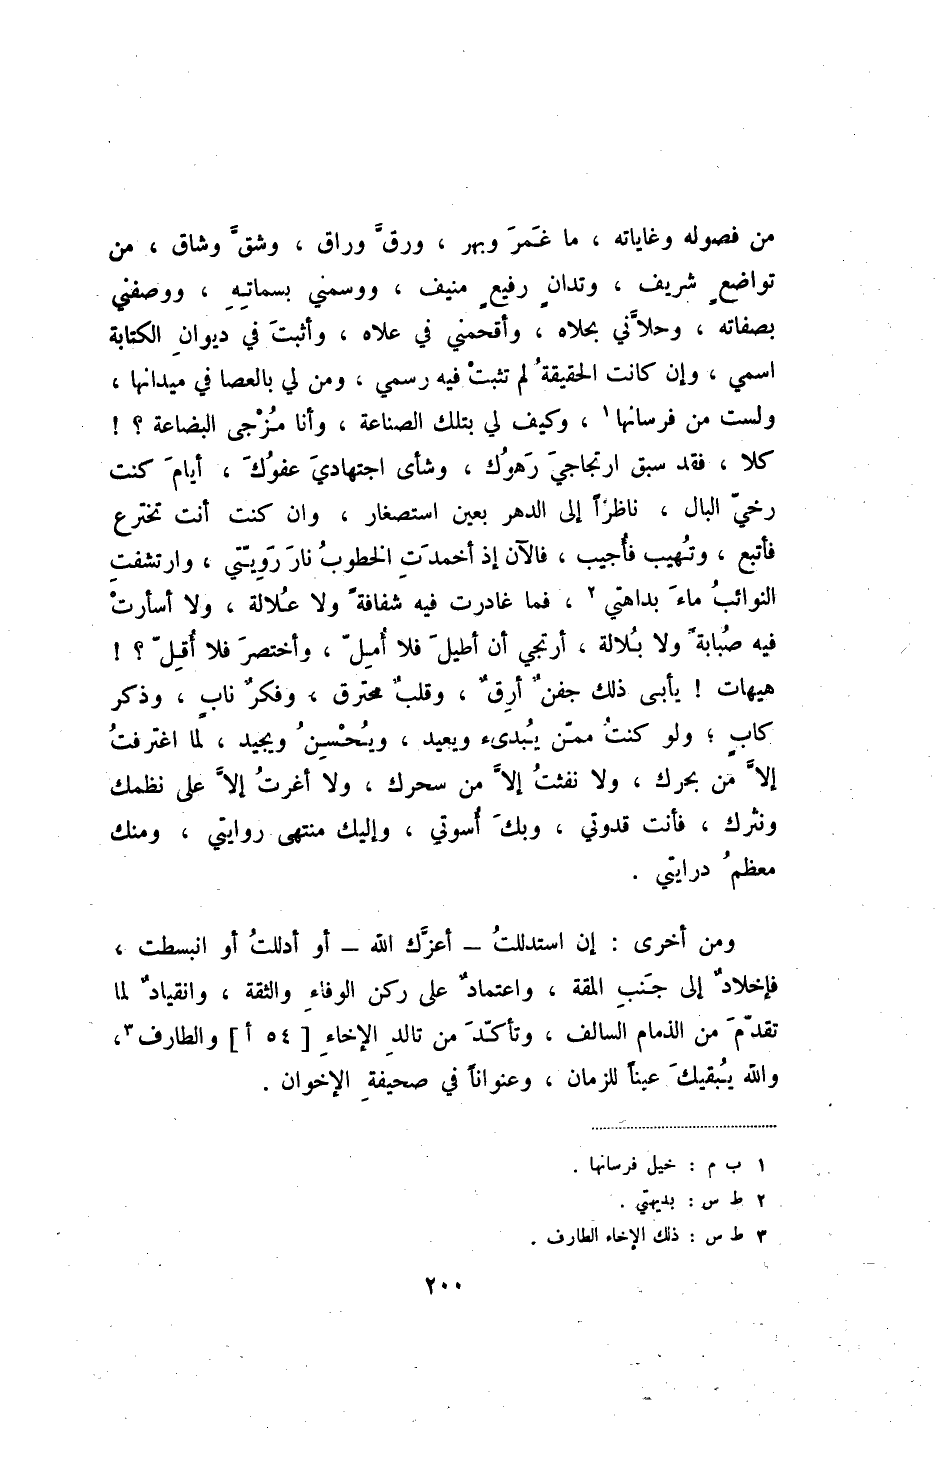 من فصوله وغاياته ، ما غَمَرَ وبهر ، ورقَّ وراق ، وشقَّ وشاق ، من
تواضعٍ شريف ، وتدانٍ رفيعٍ منيف ، ووسمني بسماتِهِ ، ووصفني
بصفاته ، وحلاَّني بحلاه ، وأقحمني في علاه ، وأثبتَ في ديوانِ الكتابة
اسمي ، وإن كانت الحقيقةُ لم تثبتْ فيه رسمي ، ومن لي بالعصا في ميدانها ،
ولست من فرسانها١ ، وكيف لي بتلك الصناعة ، وأنا مُزْجى البضاعة ؟ !
كلا ، فقد سبق ارتجاجيَ رَهوُك ، وشأى اجتهاديَ عفوُكَ ، أيامَ كنت
رخيّ البال ، ناظراً إلى الدهر بعين استصغار ، وان كنت أنت تخترع
فأتبع ، وتُهيب فأُجيب ، فالآن إذ أخمدَتِ الخطوبُ نارَ رَوِيّتي ، وارتشفتِ
النوائبُ ماءَ بداهتي ٢ ، فما غادرت فيه شفافةً ولا عُلالة ، ولا أسأرتْ
فيه صُبابةً ولا بُلالة ، أرتجي أن أطيلَ فلا أُمِلّ ، وأختصرَ فلا أُقِلّ ؟ !
هيهات ! يأبى ذلك جفنٌ أرِقٌ ، وقلبٌ محترق ، وفكرٌ نابٍ ، وذكر
كابٍ ؛ ولو كنتُ ممّن يُبدىء ويعيد ، ويُحْسِنُ ويجيد ، لما اغترفتُ
إلاَّ من بحرك ، ولا نفثتُ إلاَّ من سحرك ، ولا أغرتُ إلاَّ على نظمك
ونثرك ، فأنت قدوتي ، وبكَ أُسوتي ، وإليك منتهى روايتي ، ومنك
معظمُ درايتي .
ومن أخرى : إن استدللتُ – أعزَّك الله – أو أدللتُ أو انبسطت ،
فإخلادٌ إلى جَنبِ المقة ، واعتمادٌ على ركن الوفاءِ والثقة ، وانقيادٌ لما
تقدّمَ من الذمام السالف ، وتأكّدَ من تالدِ الإخاءِ [ ٥٤ أ ] والطارف٣،
والله يُبقيكَ عيناً للزمان ، وعنواناً في صحيفةِ الإخوان .
١ ب م : خيل فرسانها .
٢ ط س : بديهتي .
٣ ط س : ذلك الإخاء الطارف .
٢٠٠